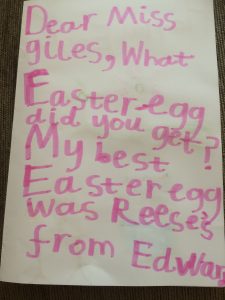 Dear Miss
giles, What
Easter-egg
did you get?
My best
Easter egg
was Reese's
from Edward